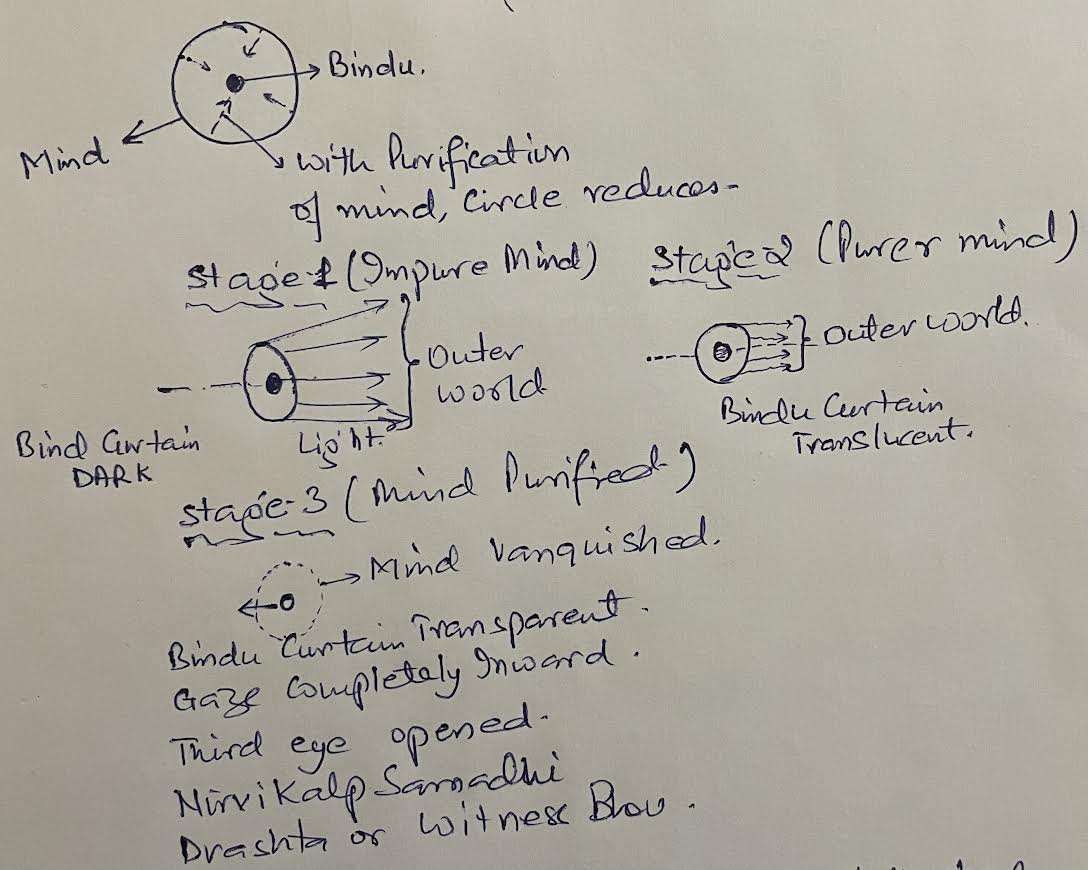 Bindu.
Mind
with Purification
of mind, Circle reduces-
Stage-1 (Impure Mind)
Outer
world
Light.
Bind Curtain
DARK
Stage-2 (Purer mind)
Outer world.
Bindu Curtain
Translucent.
Stage-3 (Mind Purified)
Mind Vanquished.
Bindu Curtain Transparent.
Gaze Completely Inward.
Third eye opened.
Nirvikalp Samadhi
Drashta or Witness Bhav.